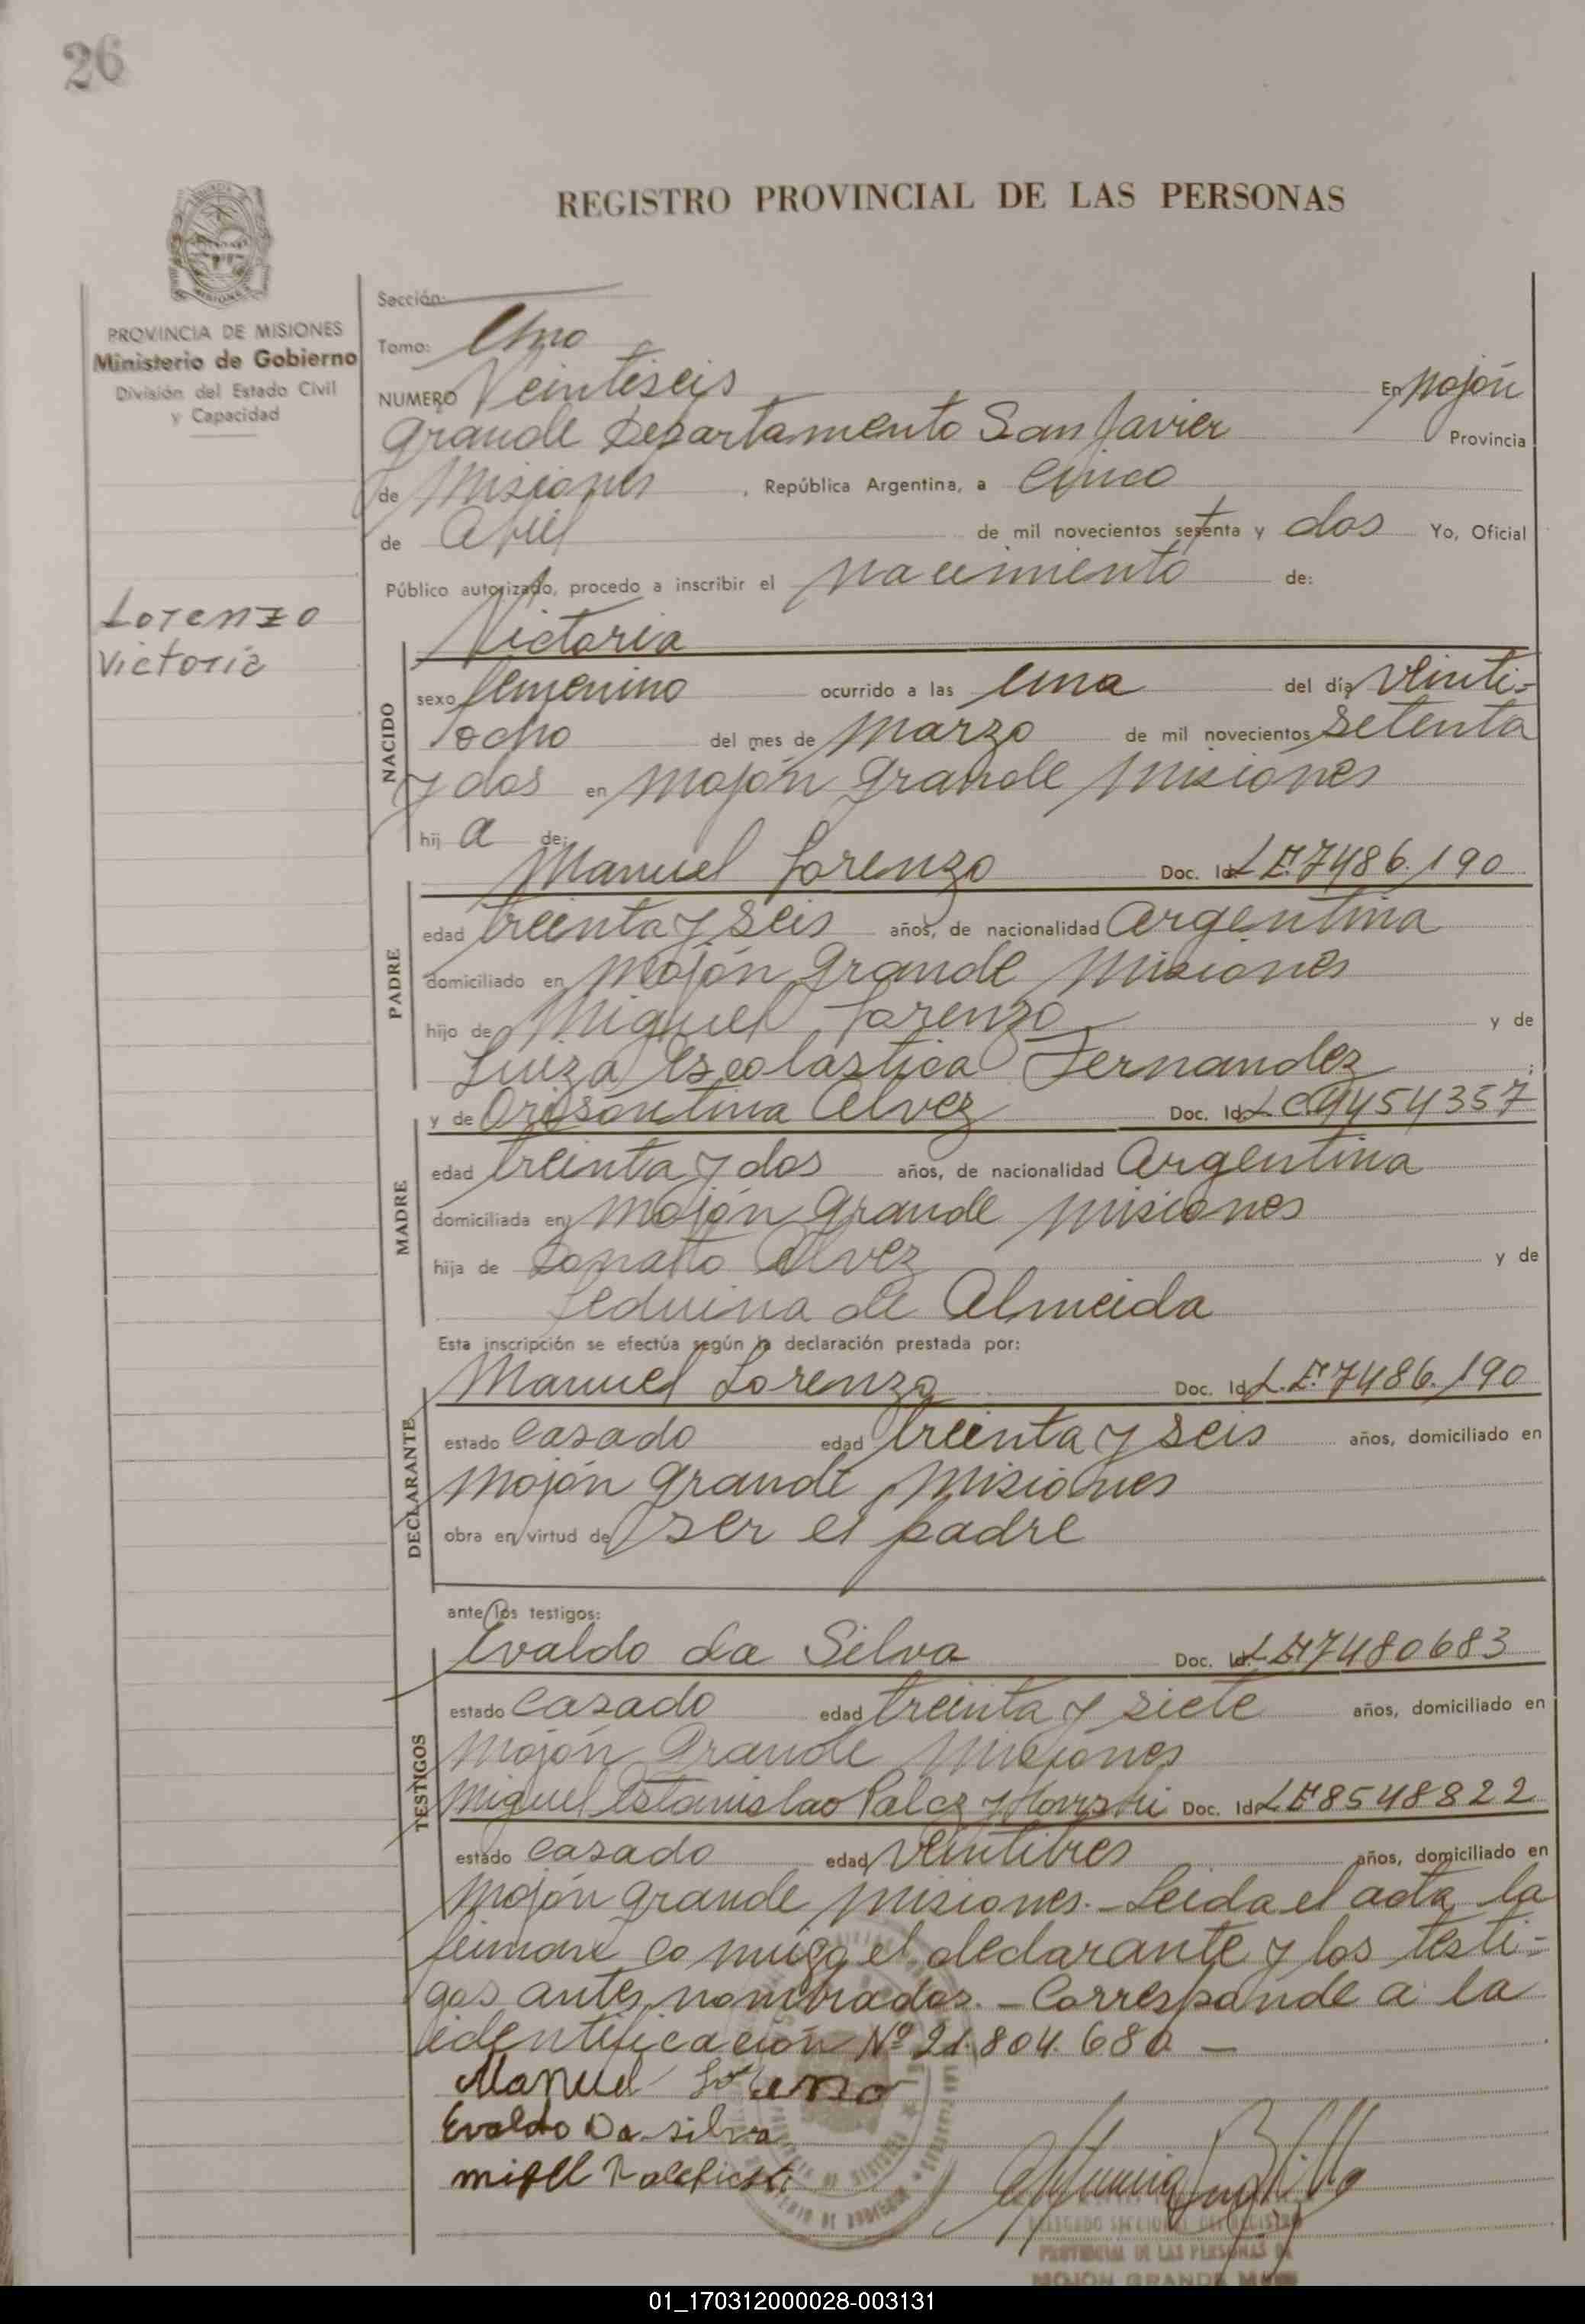 26
REGISTRO PROVINCIAL DE LAS PERSONAS
PROVINCIA DE MISIONES
Ministerio de Gobierno
División del Estado Civil
y Capacidad
Lorenzo
Victoria
Sección:
Tomo: Uno
NUMERO Veintiseis En Mojón
Grande Departamento San Javier Provincia
de Misiones, República Argentina, a Cinco
de Abril de mil novecientos setenta y dos Yo, Oficial
Público autorizado, procedo a inscribir el nacimiento de:
NACIDO
Victoria
sexo femenino ocurrido a las una del día veinti-
ocho del mes de marzo de mil novecientos setenta
y dos en Mojón Grande Misiones
hij a de:
PADRE
Manuel Lorenzo Doc. Id. L.E. 7486.190
edad treinta y seis años, de nacionalidad Argentina
domiciliado en Mojón Grande Misiones
hijo de Miguel Lorenzo y de
Luiza Escolastica Fernandez ;
MADRE
y de Orisontina Alvez Doc. Id. L.C. 9454357
edad treinta y dos años, de nacionalidad Argentina
domiciliada en Mojón Grande Misiones
hija de Donato Alvez y de
Leduina de Almeida
Esta inscripción se efectúa según la declaración prestada por:
DECLARANTE
Manuel Lorenzo Doc. Id. L.E. 7486.190
estado casado edad treinta y seis años, domiciliado en
Mojón Grande Misiones
obra en virtud de ser el padre
ante los testigos:
TESTIGOS
Evaldo da Silva Doc. Id. L.E. 7480683
estado casado edad treinta y siete años, domiciliado en
Mojón Grande Misiones
Miguel Estanislao Doc. Id. L.E. 8548822
estado casado edad veintitres años, domiciliado en
Mojón Grande Misiones.- Leida el acta la
firman co migo el declarante y los testi-
gos antes nombrados.- Corresponde a la
identificación Nº 21.804.680 -
Manuel Lorenzo
Evaldo Da silva
DELEGADO SECCIONAL DEL REGISTRO
PROVINCIAL DE LAS PERSONAS DE
MOJON GRANDE
01_170312000028-003131